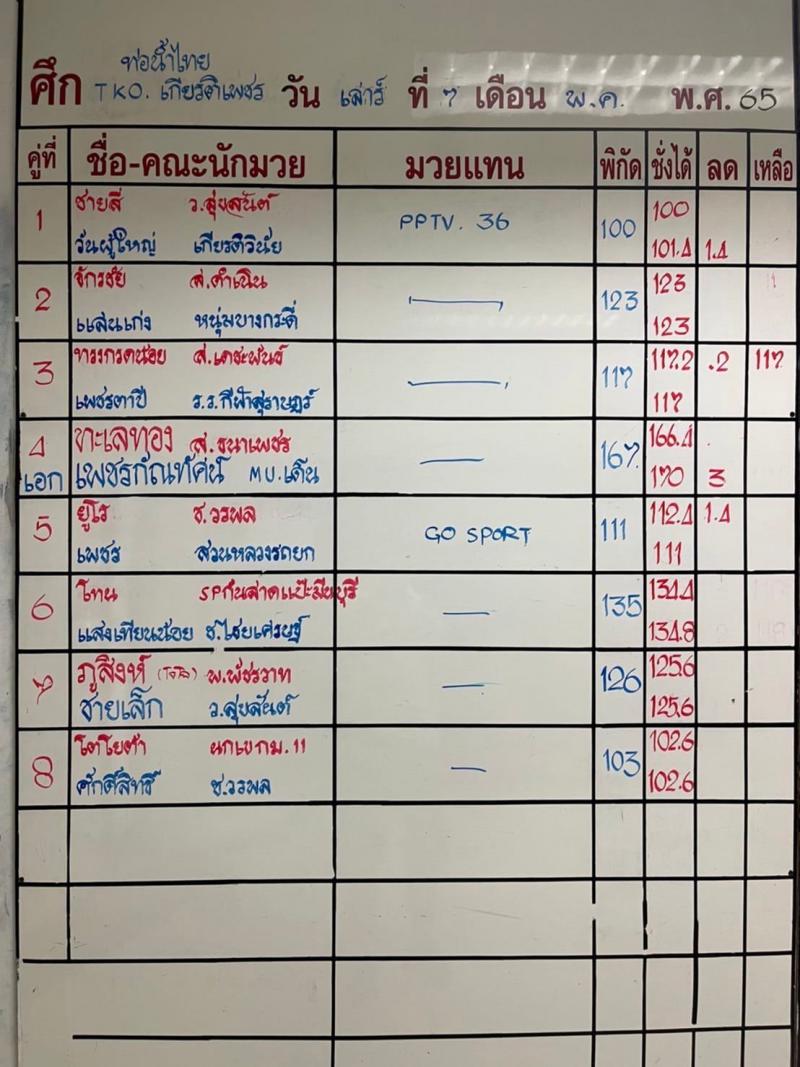 ท่อน้ำไทย
ศึก TKO. เกียรติเพชร วัน เสาร์ ที่ 7 เดือน พ.ค. พ.ศ. 65
คู่ที่ ชื่อ-คณะนักมวย มวยแทน พิกัด ชั่งได้ ลด เหลือ
1 ชายสี่ ว.สุขสันต์ PPTV. 36 100 100
วันผู้ใหญ่ เกียรติวินัย 101.4 1.4
2 จักรชัย ส.คำเนิน 123 123
แสนเก่ง หนุ่มบางกระดี่ 123
3 ทรงกรดน้อย ส.เดชะพันธ์ 117 117.2 .2 117
เพชรตาปี ร.ร.กีฬาสุราษฎร์ 117
4 ทะเลทอง ส.ธนาเพชร 167 166.4
เอก เพชรกัณฑัศน์ MU.เด้น 170 3
5 ยูโร ช.วรพล GO SPORT 111 112.4 1.4
เพชร สวนหลวงรถยก 111
6 โทน SPกันสาดแป๊ะมีนบุรี 135 134.4
แสงเทียนน้อย ช.ไชยเศรษฐ์ 134.8
7 ภูสิงห์ พ.พัชรวาท 126 125.6
ชายเล็ก ว.สุขสันต์ 125.6
8 โตโยต้า นกเขาม.11 103 102.6
ศักดิ์สิทธิ์ ช.วรพล 102.6